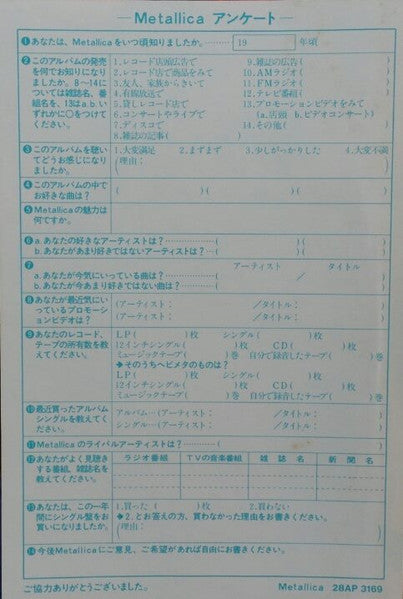 —Metallica アンケート—
❶あなたは、Metallicaをいつ頃知りましたか。………… 19 年頃
❷このアルバムの発売を何でお知りになりましたか。8〜14については雑誌名、番組名を、13はa.b.いずれかに○をつけてください。
1.レコード店頭広告で 9.雑誌の広告(　　　)
2.レコード店で商品をみて 10.AMラジオ(　　　)
3.友人、家族からきいて 11.FMラジオ(　　　)
4.有線放送で 12.テレビ番組(　　　)
5.貸しレコード店で 13.プロモーションビデオをみて
6.コンサートやライブで (a.店頭 b.ビデオコンサート)
7.ディスコで 14.その他(　　　)
8.雑誌の記事(　　　)
❸このアルバムを聴いてどうお感じになりましたか。
1.大変満足 2.まずまず 3.少しがっかりした 4.大変不満
(理由：　　　)
❹このアルバムの中でお好きな曲は？
(　　　)(　　　)(　　　)
❺Metallicaの魅力は何ですか。
❻a.あなたの好きなアーティストは？……………(　　　)(　　　)
b.あなたがあまり好きではないアーティストは？…(　　　)(　　　)
❼ アーティスト タイトル
a.あなたが今気にいっている曲は？……………( ／ )
b.あなたが今あまり好きではない曲は？………(　　　)
❽あなたが最近気にいっているプロモーションビデオは？
(アーティスト： ／タイトル： )
(アーティスト： ／タイトル： )
❾あなたのレコード、テープの所有数を教えてください。
LP(　　　)枚 シングル(　　　)枚
12インチシングル(　　　)枚 CD(　　　)枚
ミュージックテープ(　　　)巻 自分で録音したテープ(　　　)巻
➔そのうちヘビメタのものは？
LP(　　　)枚 シングル(　　　)枚
12インチシングル(　　　)枚 CD(　　　)枚
ミュージックテープ(　　　)巻 自分で録音したテープ(　　　)巻
❿最近買ったアルバムシングルを教えてください。
アルバム…(アーティスト： ／タイトル： )
シングル…(アーティスト： ／タイトル： )
⓫Metallicaのライバルアーティストは？…………(　　　)
⓬あなたがよく見聴きする番組、雑誌名を教えてください。
ラジオ番組 TVの音楽番組 雑誌名 新聞名
⓭あなたは、この一年間にシングル盤をお買いになりましたか。
1.買った(　　　)枚 2.買わない
➔2.とお答えの方、買わなかった理由をお書きください。
(理由：　　　)
⓮今後Metallicaにご意見、ご希望があれば自由にお書きください。
ご協力ありがとうございました。 Metallica 28AP 3169